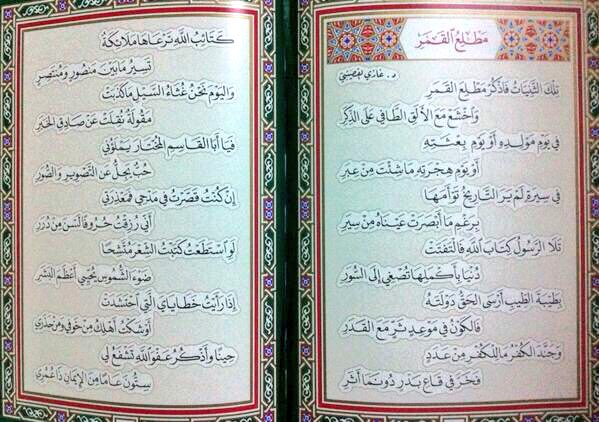 مَطْلِعُ القَمَرِ
د. غازي القصيبي
تِلْكَ الثَّنِيَّاتُ فَاذْكُرْ مَطْلِعَ القَمَرِ
وَاخْشَعْ مَعَ الأَلَقِ الطَّافِي عَلَى الذِّكَرِ
فِي يَوْمِ مَوْلِدِهِ أَوْ يَوْمِ بِعْثَتِهِ
أَوْ يَوْمِ هِجْرَتِهِ مَا شِئْتَ مِنْ عِبَرِ
فِي سِيرَةٍ لَمْ يَرَ التَّارِيخُ تَوْأَمَهَا
بِرَغْمِ مَا أَبْصَرَتْ عَيْنَاهُ مِنْ سِيَرِ
تَلَا الرَّسُولُ كِتَابَ اللهِ فَالْتَفَتَتْ
دُنْيَا بِأَكْمَلِهَا تُصْغِي إِلَى السُّوَرِ
بِطَيْبَةِ الطِّيبِ أَرْسَى الحَقُّ دَوْلَتَهُ
فَالكَوْنُ فِي مَوْعِدٍ ثَرٍّ مَعَ القَدَرِ
وَجَنَّدَ الكُفْرُ مَا لِلْكُفْرِ مِنْ عَدَدٍ
فَخَرَّ فِي قَاعِ بَدْرٍ دُونَمَا أَثَرِ
كَتَائِبُ اللهِ تَرْعَاهَا مَلَائِكَةٌ
تَسِيرُ مَا بَيْنَ مَنْصُورٍ وَمُنْتَصِرِ
وَاليَوْمَ نَحْنُ غُثَاءُ السَّيْلِ مَا كَذَبَتْ
مَقُولَةٌ نُقِلَتْ عَنْ صَادِقِ الخَبَرِ
فَيَا أَبَا القَاسِمِ المُخْتَارَ يَمْلَؤُنِي
حُبٌّ يَجِلُّ عَنِ التَّصْوِيرِ وَالصُّوَرِ
إِنْ كُنْتُ قَصَّرْتُ فِي مَدْحِي فَمَعْذِرَتِي
أَنِّي رُزِقْتُ حُرُوفًا لَسْنَ مِنْ دُرَرِ
لَوِ اسْتَطَعْتُ كَتَبْتُ الشِّعْرَ مُتَّشِحًا
ضَوْءَ الشُّمُوسِ يُحَيِّي أَعْظَمَ البَشَرِ
إِذَا رَأَيْتُ خَطَايَايَ الَّتِي احْتَشَدَتْ
أَوْشَكْتُ أَهْلِكُ مِنْ خَوْفِي وَمِنْ حَذَرِي
حِينًا وَأَذْكُرُ عَفْوَ اللهِ تَشْفَعُ لِي
سِتُّونَ عَامًا مِنَ الإِيمَانِ ذَا عُمُرِي